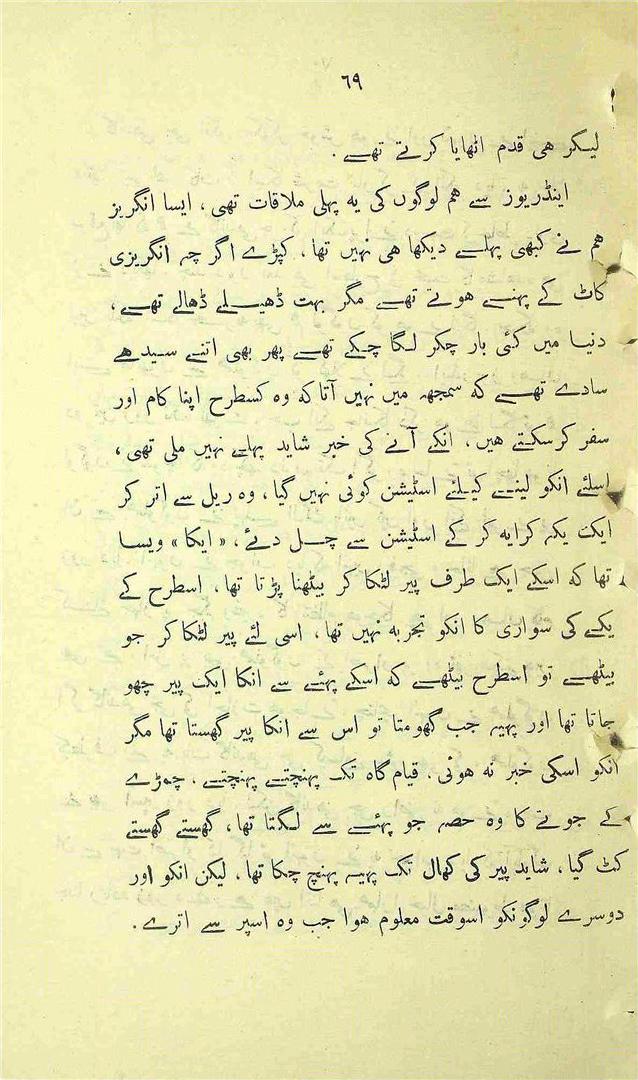 ٦٩
لیکر ھی قدم اٹھایا کرتے تھے .
اینڈریوز سے ھم لوگوں کی یہ پہلی ملاقات تھی ، ایسا انگریز
ھم نے کبھی پہلے دیکھا ھی نہیں تھا . کپڑے اگر چہ انگریزی
کاٹ کے پہنے ھوتے تھے مگر بہت ڈھیلے ڈھالے تھے ،
دنیا میں کئی بار چکر لگا چکے تھے پھر بھی اتنے سیدھے
سادے تھے کہ سمجھہ میں نہیں آتا کہ وہ کسطرح اپنا کام اور
سفر کرسکتے ھیں . انکے آنے کی خبر شاید پہلے نہیں ملی تھی ،
اسلئے انکو لینے کیلئے اسٹیشن کوئی نہیں گیا ، وہ ریل سے اتر کر
ایک یکہ کرایہ کر کے اسٹیشن سے چل دئے ، « ایکا » ویسا
تھا کہ اسکے ایک طرف پیر لٹکا کر بیٹھنا پڑتا تھا . اسطرح کے
یکے کی سواری کا انکو تجربہ نہیں تھا ، اسی لئے پیر لٹکا کر جو
بیٹھے تو اسطرح بیٹھے کہ اسکے پہئے سے انکا ایک پیر چھو
جاتا تھا اور پہیہ جب گھومتا تو اس سے انکا پیر گھستا تھا مگر
انکو اسکی خبر نہ ھوئی . قیام گاہ تک پہنچتے پہنچتے . چمڑے
کے جوتے کا وہ حصہ جو پہئے سے لگتا تھا ، گھستے گھستے
کٹ گیا ، شاید پیر کی کھال تک پہیہ پہنچ چکا تھا ، لیکن انکو اور
دوسرے لوگونکو اسوقت معلوم ھوا جب وہ اسپر سے اترے .